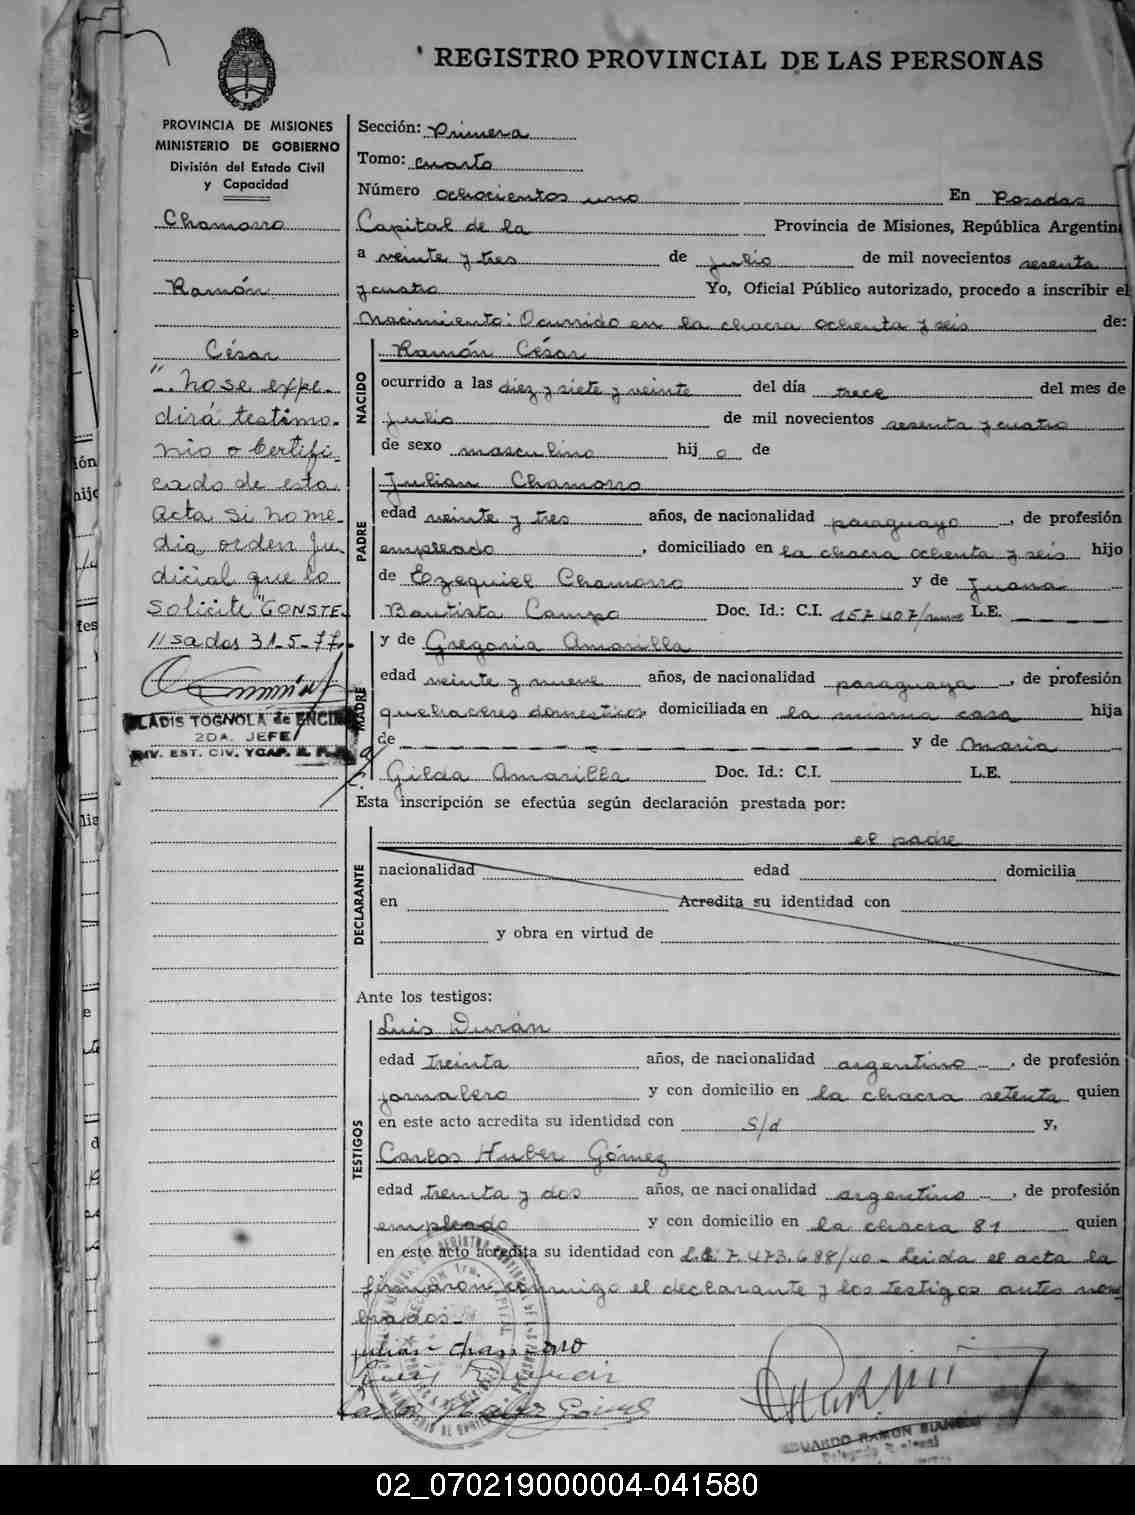 REGISTRO PROVINCIAL DE LAS PERSONAS
PROVINCIA DE MISIONES
MINISTERIO DE GOBIERNO
División del Estado Civil
y Capacidad
Chamorro
Ramón
César
". No se expe-
dirá testimo-
nio o Certifi-
cado de esta
Acta si no me-
dia, orden Ju-
dicial que lo
solicite" CONSTE-
//sadas 31-5-77-
GLADIS TOGNOLA de ENCI
2DA. JEFE
DIV. EST. CIV. Y CAP. R. P. P.
Sección: Primera
Tomo: cuarto
Número ochocientos uno En Posadas
Capital de la Provincia de Misiones, República Argentina
a veinte y tres de julio de mil novecientos sesenta
y cuatro Yo, Oficial Público autorizado, procedo a inscribir el
Nacimiento: Ocurrido en la chacra ochenta y seis de:
NACIDO
Ramón César
ocurrido a las diez y siete y veinte del día trece del mes de
julio de mil novecientos sesenta y cuatro
de sexo masculino hij o de
PADRE
Julian Chamorro
edad veinte y tres años, de nacionalidad paraguayo, de profesión
empleado, domiciliado en la chacra ochenta y seis hijo
de Ezequiel Chamorro y de Juana
Bautista Campo Doc. Id.: C.I. 157407/ L.E.
MADRE
y de Gregoria Amarilla
edad veinte y nueve años, de nacionalidad paraguaya, de profesión
quehaceres domesticos domiciliada en la misma casa hija
de y de Maria
Gilda Amarilla Doc. Id.: C.I. L.E.
Esta inscripción se efectúa según declaración prestada por:
DECLARANTE
el padre
nacionalidad edad domicilia
en Acredita su identidad con
y obra en virtud de
Ante los testigos:
TESTIGOS
Luis Durán
edad treinta años, de nacionalidad argentino, de profesión
jornalero y con domicilio en la chacra setenta quien
en este acto acredita su identidad con s/d y,
Carlos Huber Gómez
edad treinta y dos años, de nacionalidad argentino, de profesión
empleado y con domicilio en la chacra 81 quien
en este acto acredita su identidad con L.E 7.473.688/40 - Leida el acta la
firmaron conmigo el declarante y los testigos antes nom
brados.-
julian chamorro
Luis Duran
Carlos Huber Gómez
EDUARDO RAMON BIANCHI
02_070219000004-041580